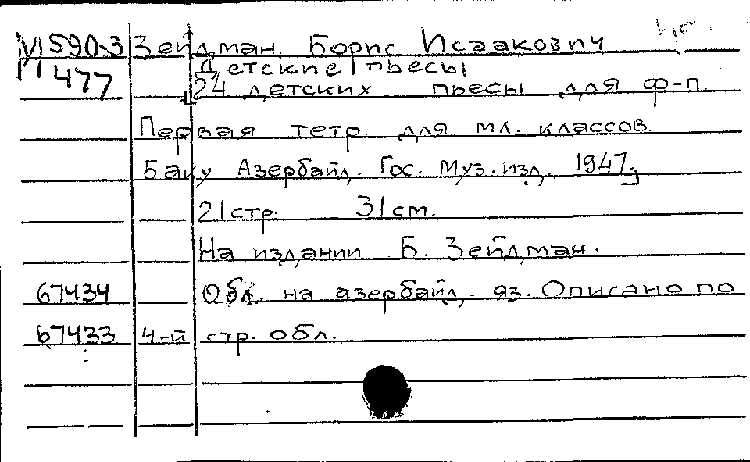 М 590-3 Зейдман Борис Исаакович
477 [Детские пьесы]
24 детских пьесы для ф-п.
Первая тетр. для мл. классов
Баку Азербайд. Гос. Муз. изд. 1947
21 стр. 31 см.
На издании Б. Зейдман.
67434 Обл. на азербайд. яз. Описано по
67433 4-й стр. обл.